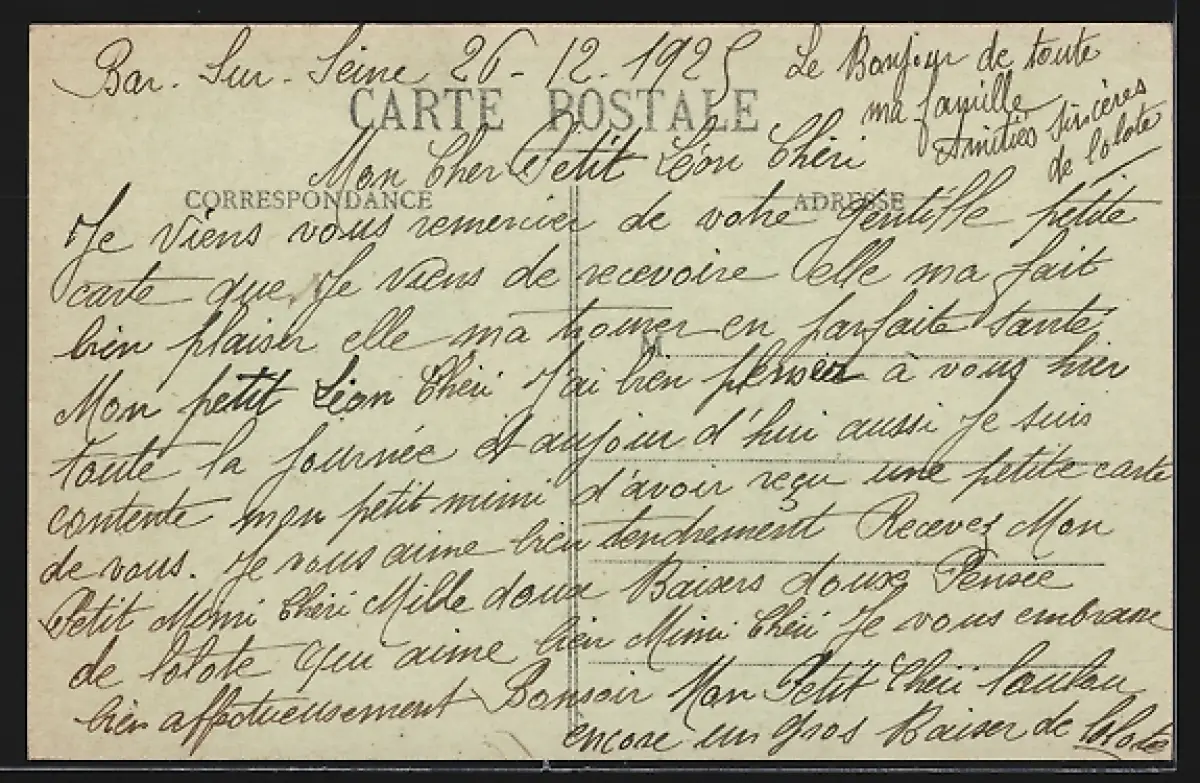 Bar. Sur. Seine 26-12.1925
Le Bonjour de toute
ma famille
Amitiés sincères
de lolote
CARTE POSTALE
Mon Cher Petit Léon Chéri
CORRESPONDANCE
ADRESSE
Je viens vous remercier de votre gentille petite
carte que Je viens de recevoire elle ma fait
bien plaisir elle ma trouver en parfaite santé
M
Mon petit Léon Chéri J'ai bien penser à vous hier
toute la journée et aujour d'hui aussi Je suis
contente mon petit mimi d'avoir reçu une petite carte
de vous. Je vous aime bien tendrement Recevez Mon
Petit Mimi Chéri Mille doux Baisers douxe Pensée
de lolote qui aime bien Mimi Chéri Je vous embrasse
bien affectueusement Bonsoir Mon Petit Chéri
encore un gros Baiser de lolote